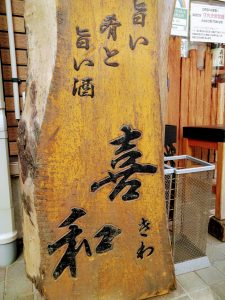 旨い
肴と
旨い酒
喜和
きわ